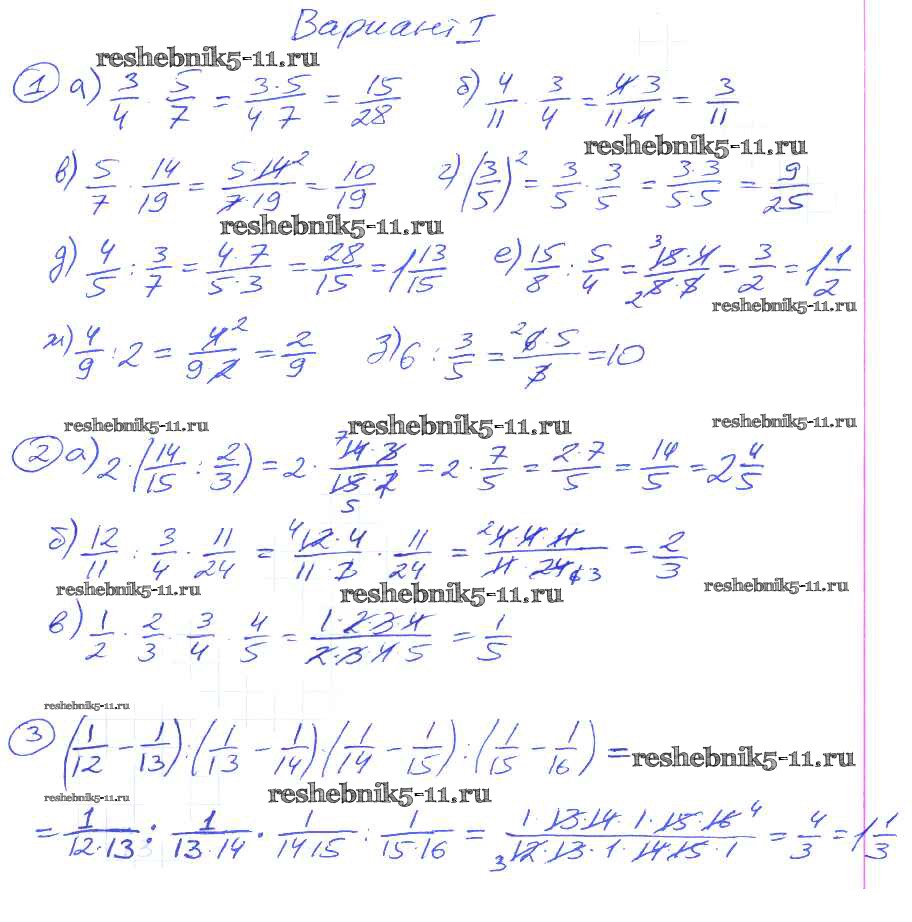 Вариант I
reshebnik5-11.ru
① а) 3/4 · 5/7 = 3·5/4 7 = 15/28 б) 4/11 · 3/4 = 4 3/11 4 = 3/11
reshebnik5-11.ru
в) 5/7 · 14/19 = 5·14²/7·19 = 10/19 г) (3/5)² = 3/5 · 3/5 = 3·3/5·5 = 9/25
reshebnik5-11.ru
д) 4/5 : 3/7 = 4·7/5·3 = 28/15 = 1 13/15 е) 15/8 : 5/4 = ³15·4/₂8·5 = 3/2 = 1 1/2
reshebnik5-11.ru
ж) 4/9 : 2 = 4²/9 2 = 2/9 з) 6 : 3/5 = ²6·5/3 = 10
reshebnik5-11.ru reshebnik5-11.ru reshebnik5-11.ru
② а) 2·(14/15 : 2/3) = 2 · ⁷14·3/15·2 5 = 2 · 7/5 = 2·7/5 = 14/5 = 2 4/5
б) 12/11 : 3/4 · 11/24 = ⁴12·4/11·3 · 11/24 = ²4·4·11/11·24 6 3 = 2/3
reshebnik5-11.ru reshebnik5-11.ru reshebnik5-11.ru
в) 1/2 · 2/3 · 3/4 · 4/5 = 1·2·3·4/2·3·4·5 = 1/5
reshebnik5-11.ru
③ (1/12 − 1/13):(1/13 − 1/14)·(1/14 − 1/15):(1/15 − 1/16) =
reshebnik5-11.ru
reshebnik5-11.ru reshebnik5-11.ru
= 1/12·13 : 1/13·14 · 1/14 15 : 1/15·16 = 1·13·14·1·15·16 ⁴/₃12·13·1·14 15·1 = 4/3 = 1 1/3